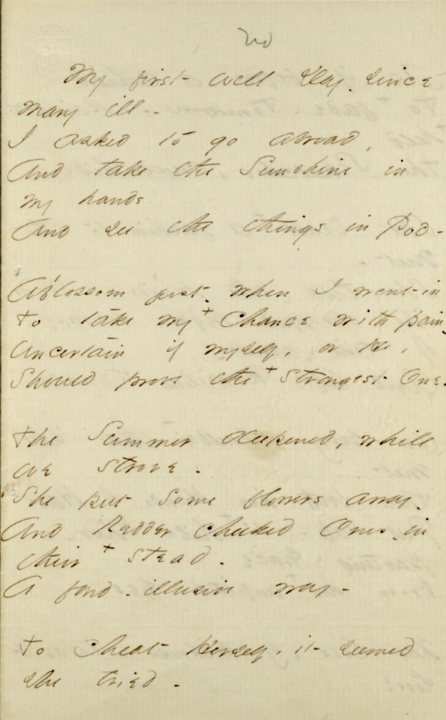 20
My first well Day, since
many ill -
I asked to go abroad,
And take the Sunshine in
my hands
And see the things in Pod -
A'blossom just when I went in
To take my + Chance with pain
Uncertain if myself, or He,
Should prove the + strongest One.
The Summer deepened, while
we strove -
She put some flowers away -
And Redder cheeked Ones in
their + stead -
A fond - illusive way -
To Cheat Herself, it seemed
she tried -